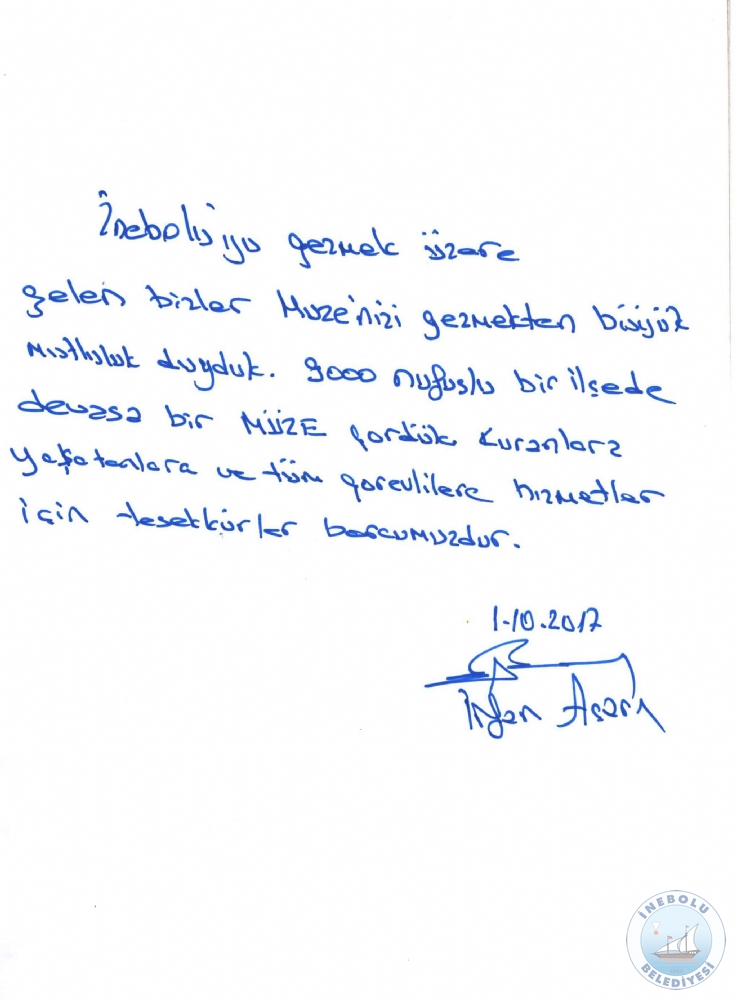 İnebolu'yu gezmek üzere
gelen bizler Muze'nizi gezmekten büyük
mutluluk duyduk. 9000 nufuslu bir ilçede
devasa bir MÜZE gördük Kuranlara
yaşatanlara ve tüm gorevlilere hizmetler
için teşekkürler borcumuzdur.
1-10.2017
İrfan
İNEBOLU
BELEDİYESİ